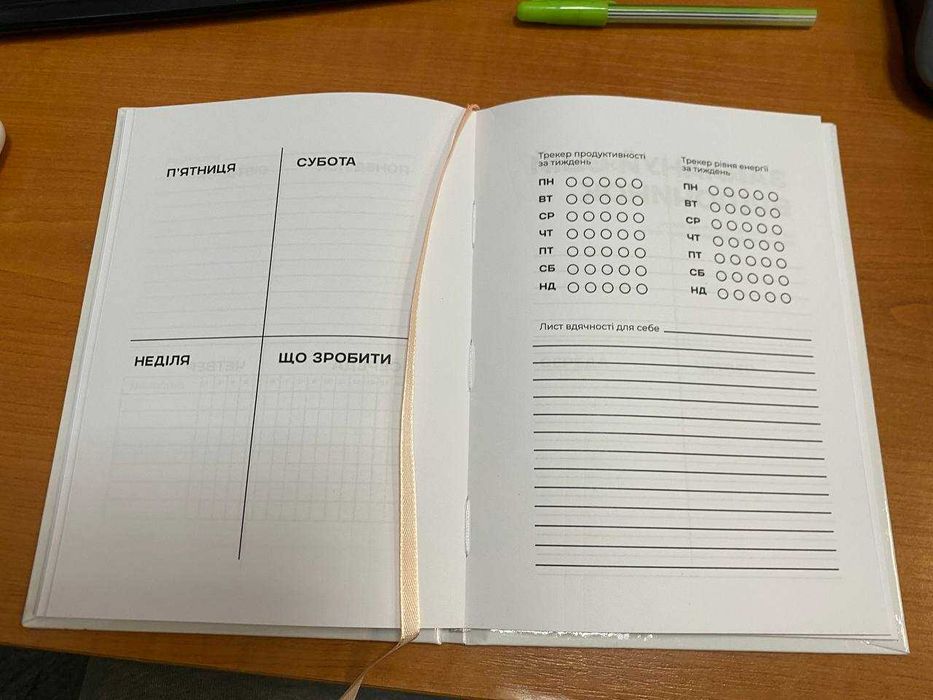 П'ЯТНИЦЯ
СУБОТА
НЕДІЛЯ
ЩО ЗРОБИТИ
Трекер продуктивності
за тиждень
ПН
ВТ
СР
ЧТ
ПТ
СБ
НД
Трекер рівня енергії
за тиждень
ПН
ВТ
СР
ЧТ
ПТ
СБ
НД
Лист вдячності для себе